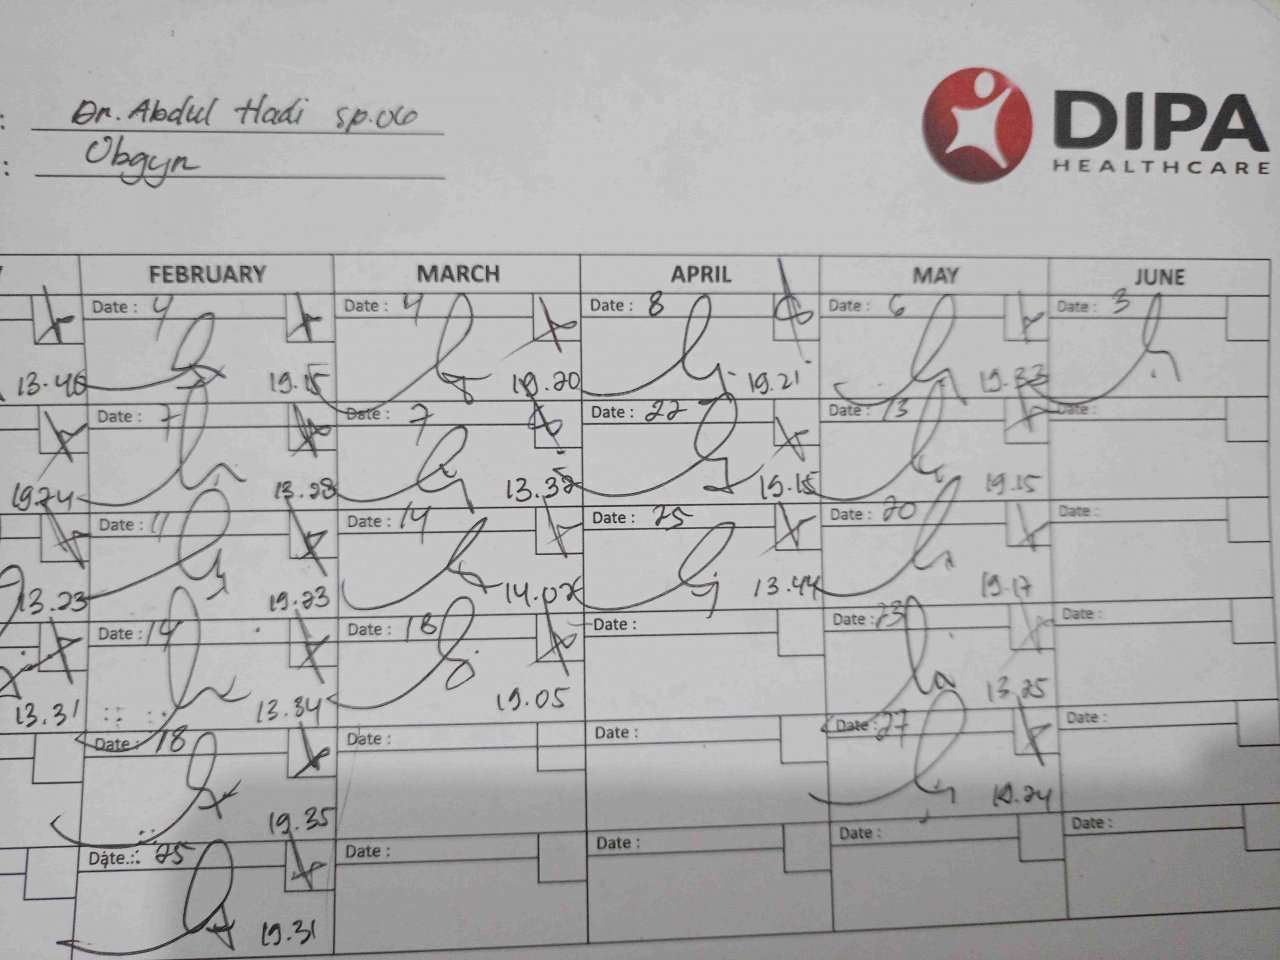 : Dr. Abdul Hadi sp.OG
: Obgyn
DIPA
HEALTHCARE
FEBRUARY MARCH APRIL MAY JUNE
Date : 4 Date : 4 Date : 8 Date : 6 Date : 3
13.46 19.15 19.20 19.21 19.33
Date : 7 Date : 7 Date : 22 Date : 13 Date :
19.24 13.28 13.32 19.15 19.15
Date : 11 Date : 14 Date : 25 Date : 20 Date :
13.23 19.23 14.02 13.44 19.17
Date : 14 Date : 18 Date : Date : 23 Date :
13.31 13.34 19.05 13.25
Date : 18 Date : Date : Date : 27 Date :
19.35 19.24
Date : 25 Date : Date : Date : Date :
19.31